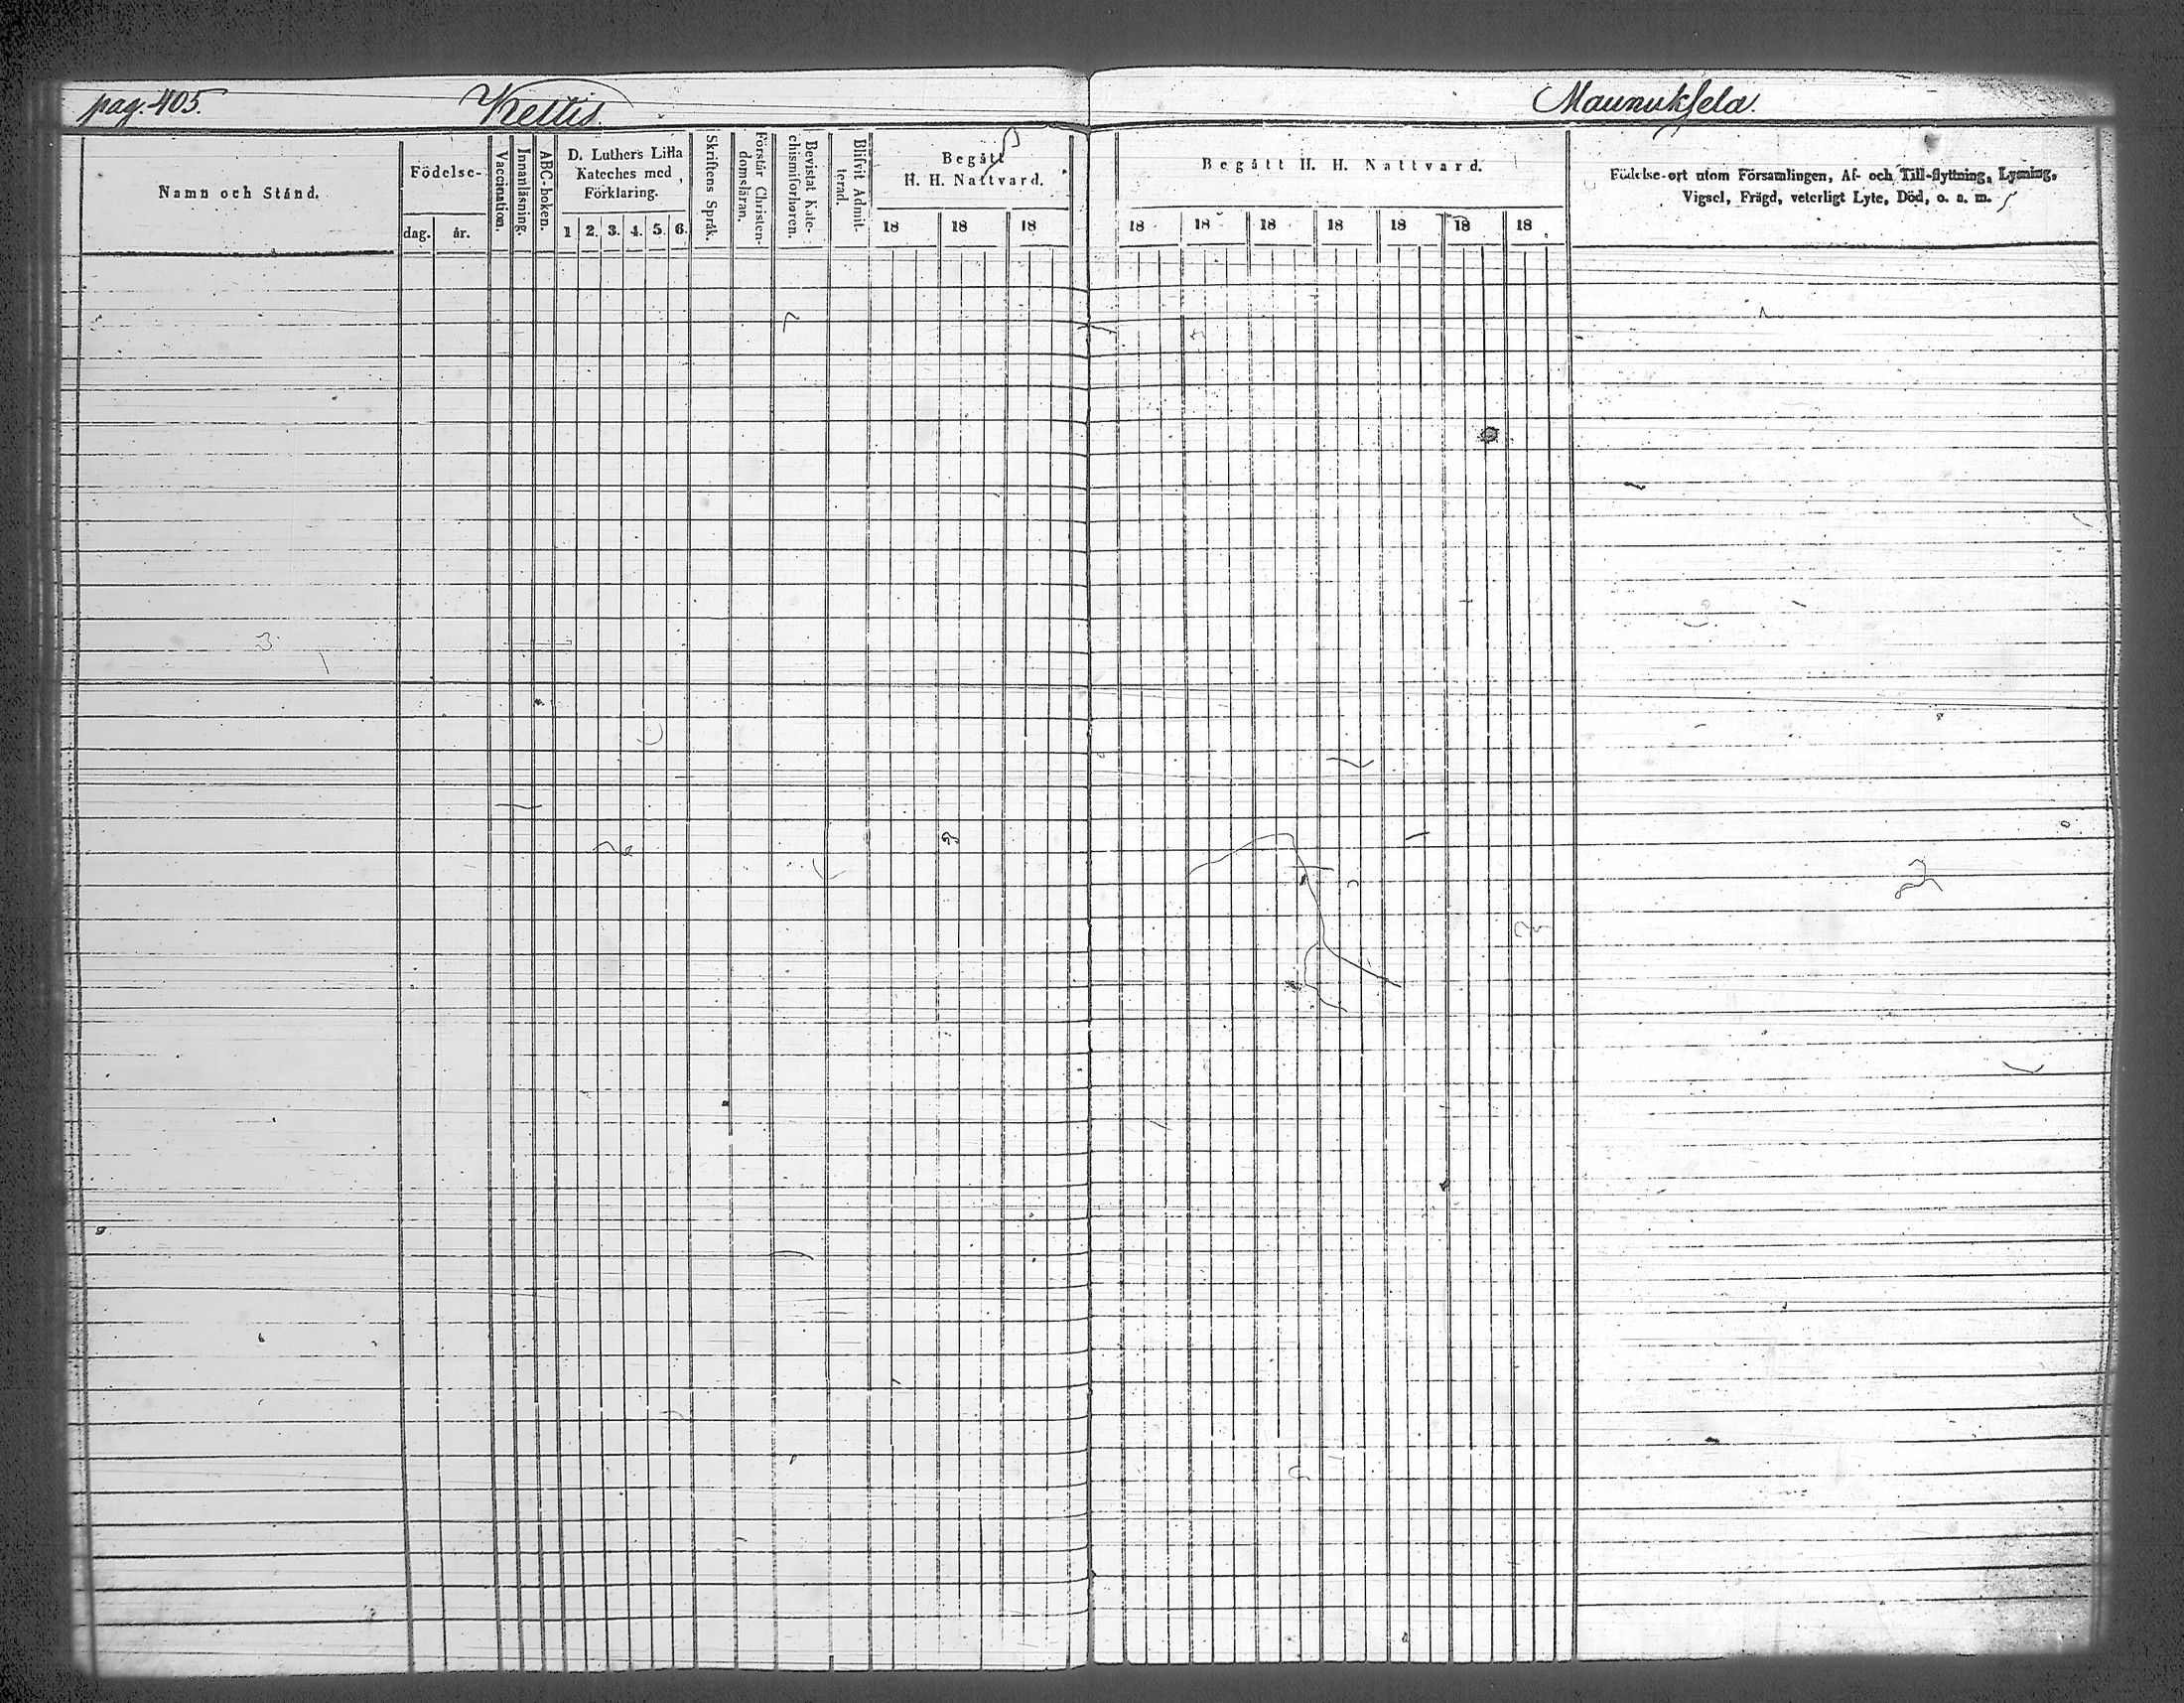 pag. 405. Kettis Maunuksela.
Namn och Stånd.
Födelse-
dag. år.
Vaccination.
Innanläsning.
ABC-boken.
D. Luthers Lilla
Kateches med
Förklaring.
1 2. 3. 4. 5. 6.
Skriftens Språk.
Förstår Christen-
domsläran.
Bevistat Kate-
chismiförhören.
Blifvit Admit-
terad.
Begått
H. H. Nattvard.
18 18 18
Begått H. H. Nattvard.
18 18 18 18 18 18 18
Födelse-ort utom Församlingen, Af- och Till-flyttning, Lysning,
Vigsel, Frägd, veterligt Lyte, Död, o. a. m.